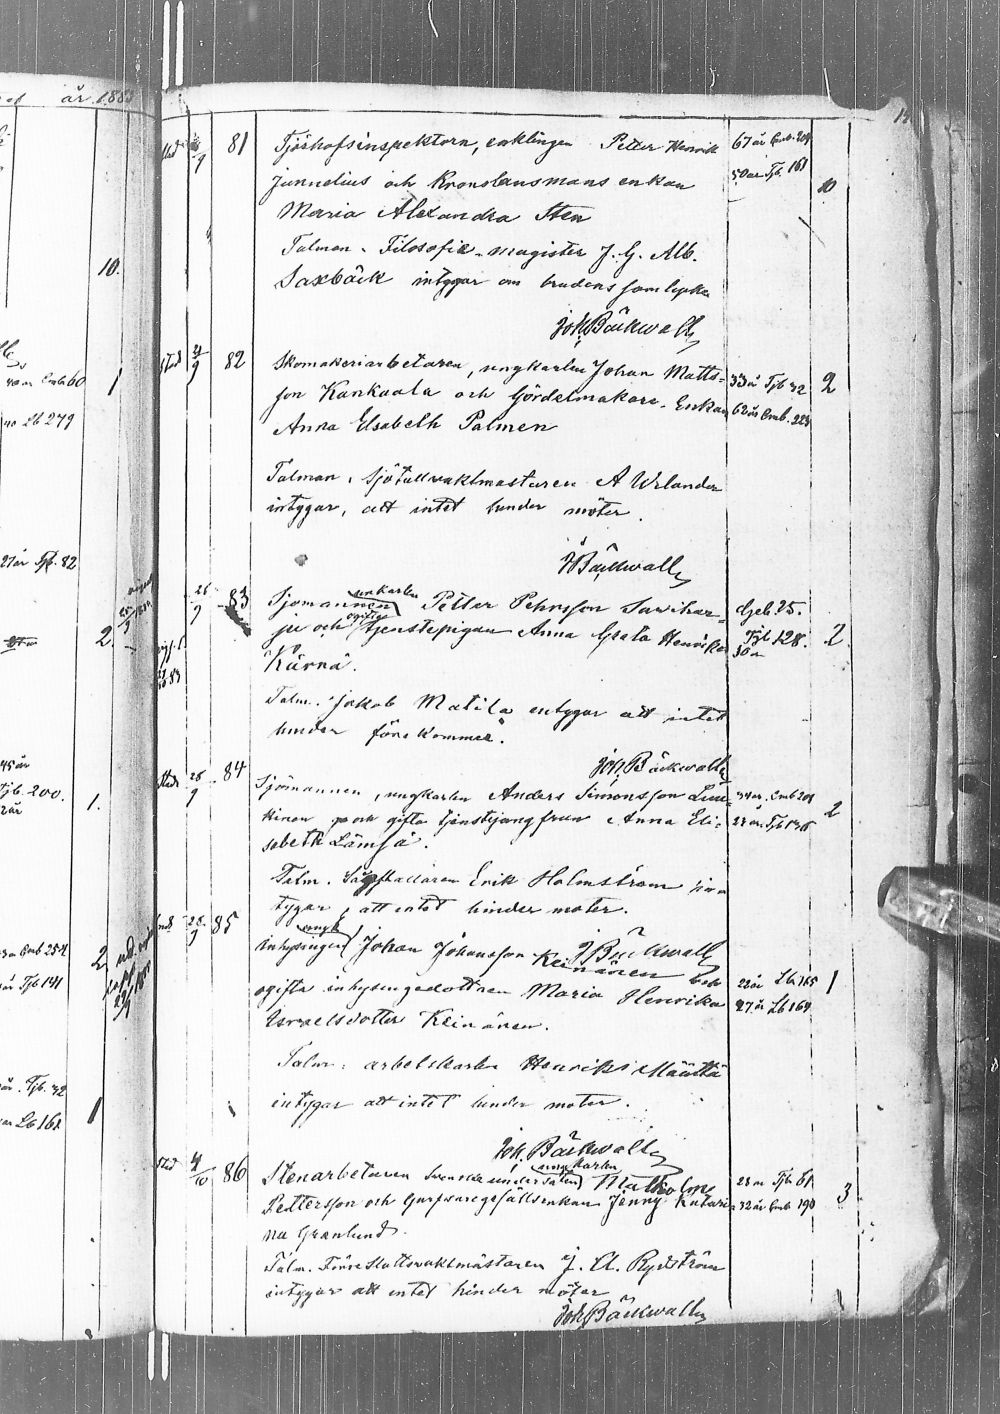 år 1883
10.
40 år Emb 60
1
40 Lb 279
27 år Tjb. 82
2.
45 år
Tjb. 200.
1.
Emb 254
2
år Tjb 141
år. Tjb. 32
år Lb 161
1
9
81
Tjöshofsinspektorn, enklingen Petter Henrik
67 år Emb. 204
Junnelius och Kronolänsmans enkan
50 år Tjb. 161
10
Maria Alexandra Sten
Talman. Filosofie magister J. G. Alb.
Saxbäck intygar om brudens samtycke
Joh. Bäckwall
stad 21/9
82
Skomakeriarbetaren, ungkarlen Johan Matts-
33 år Tjb 32
2
son Kankaala och Gördelmakare-Enkan
62 år Emb. 223
Anna Elsabeth Palmen
Talman, Sjötullvaktmästaren A Welander
intygar, att intet hinder möter.
J Bäckwall
26/9
83
Sjömannen ungkarlen Petter Pehrsson Savihar-
Geb. 25.
ju och ogifta tjenstepigan Anna Greta Henriks
Tjb 128.
2.
30 år
Kärnä.
Talm. Jakob Matila intygar att intet
hinder förekommer.
Joh. Bäckwall
stad 28/9
84
Sjömannen, ungkarlen Anders Simonsson
34 år. Emb 201
kinen och ogifta tjenstejungfrun Anna Eli-
Tjb 136
2
sabeth Lämsä.
Talm. Erik Holmström in-
tygar, att intet hinder möter.
J Bäckwall
28/9
85
inhysingen ungk Johan Johansson Keinänen och
22 år Lb 165
1
ogifta inhysingedottren Maria Henrika
27 år Lb 164
Israelsdotter Keinänen.
Talm. arbetskarlen Henriks Määttä
intygar att intet hinder möter.
Joh. Bäckwall
stad 4/10
86
Stenarbetaren Svenska undersåten ungkarlen Malkolm
28 år Tjb 61
Pettersson och Garfvaregesällsenkan Jenny Katari-
32 år Emb 190
3
na Granlund.
Talm. Före Stattsvaktmästaren J. El. Rydström
intygar att intet hinder möter
Joh. Bäckwall